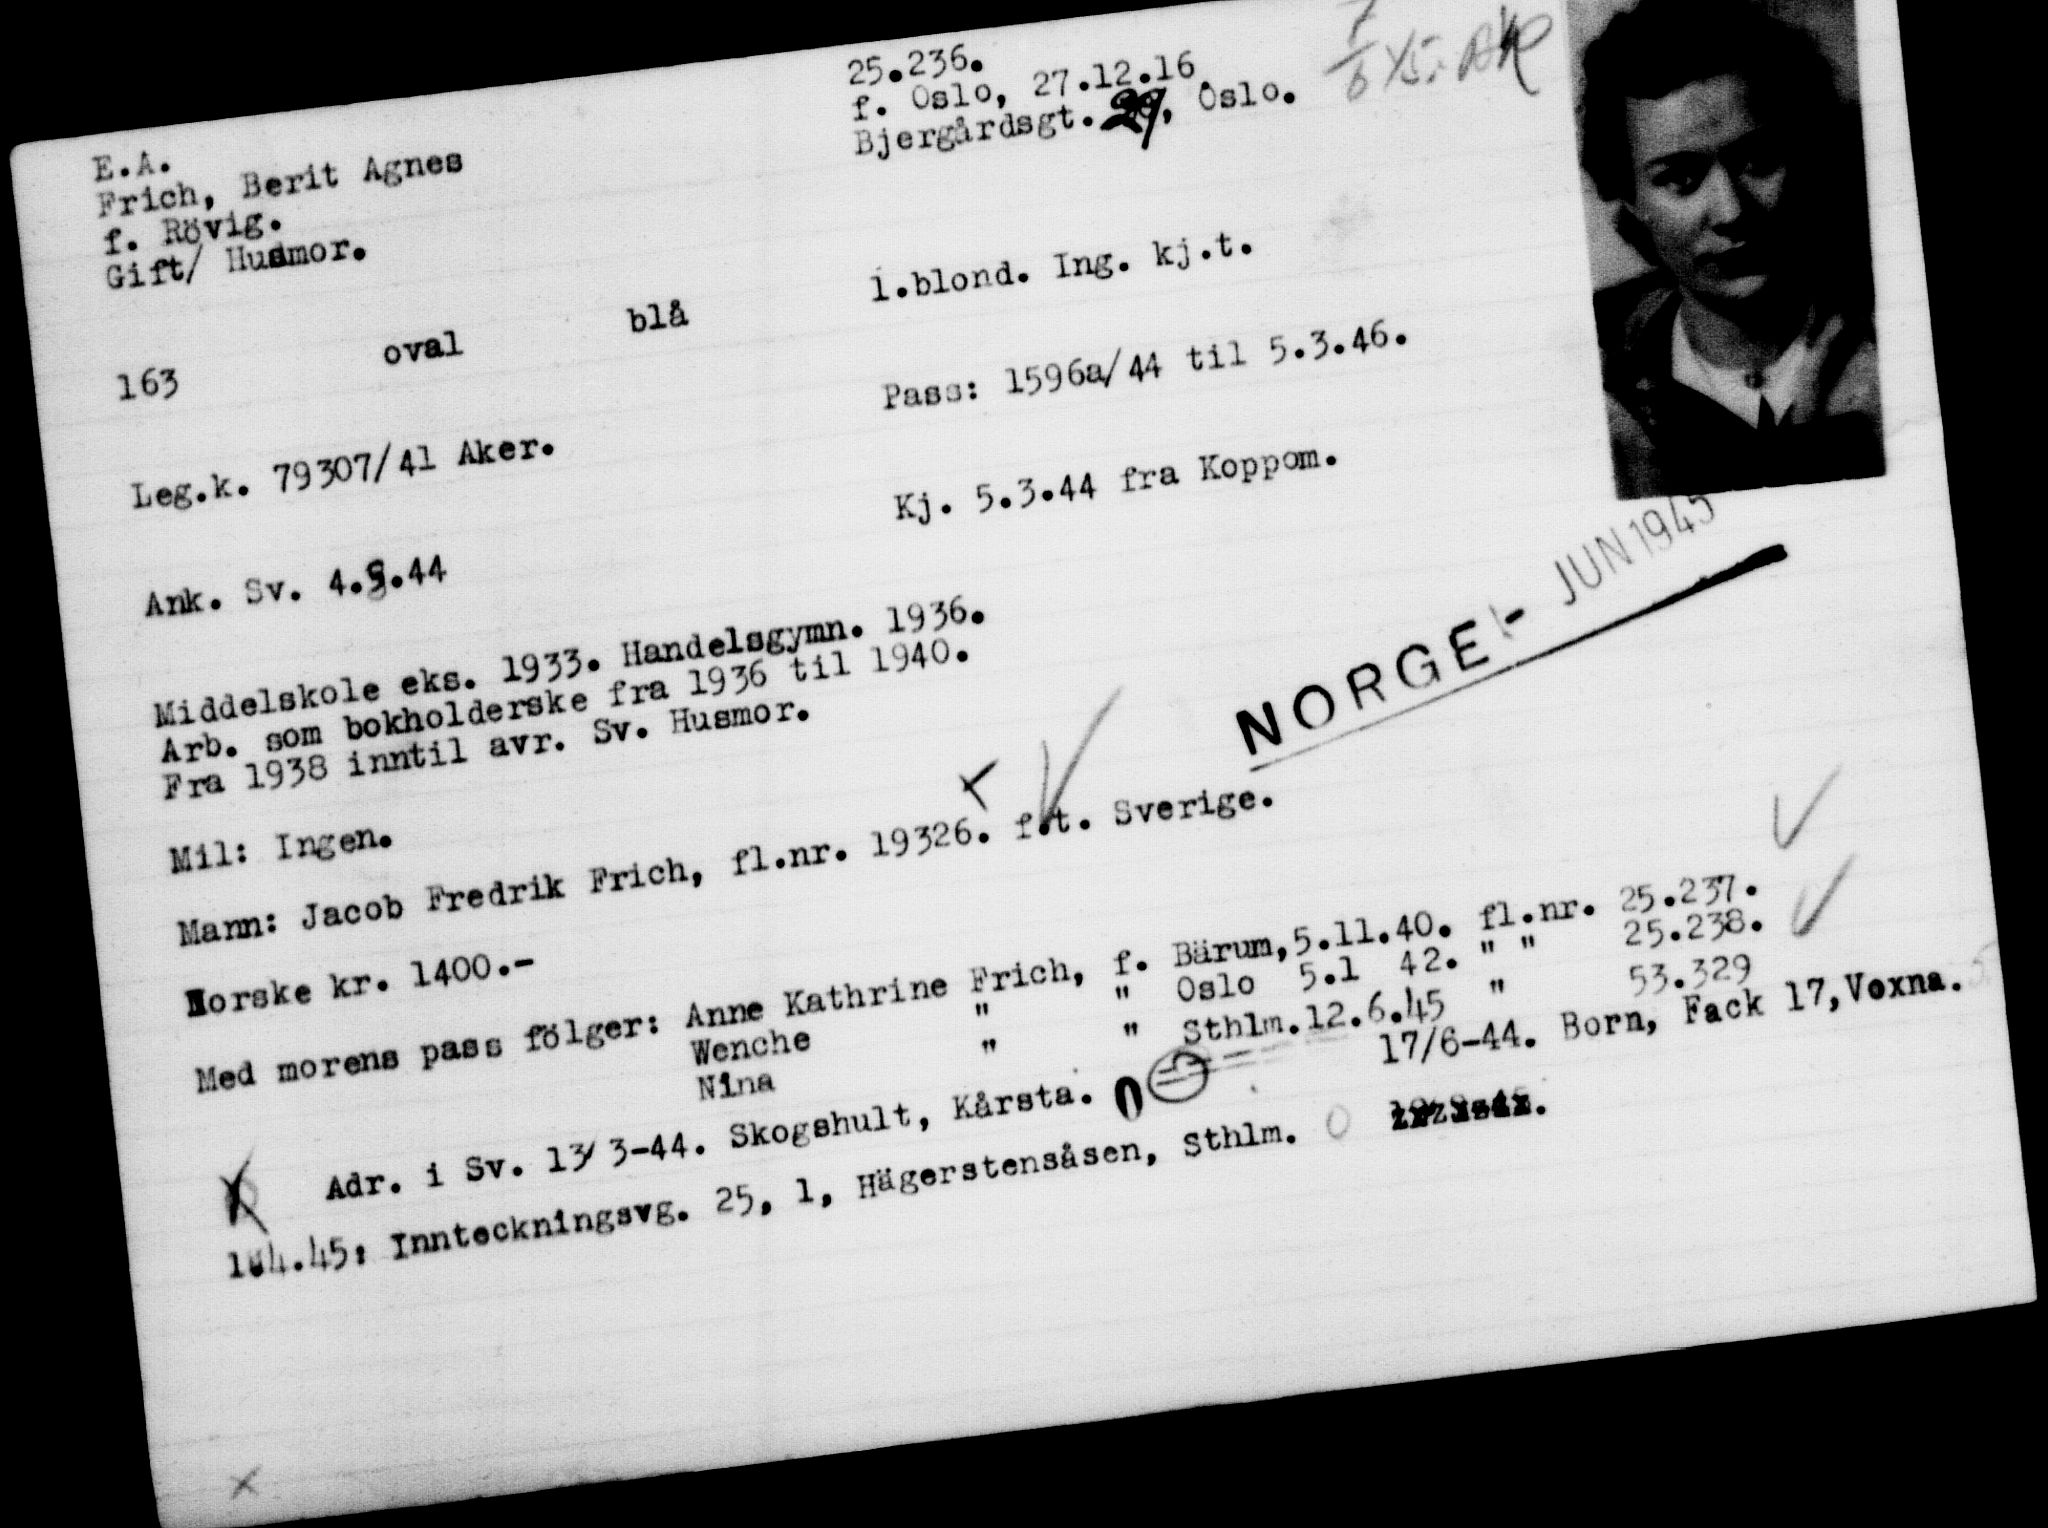 25.236.
f. Oslo, 27.12.16.
Bjergårdsgt. 29, Oslo.
E.A.
Frich, Berit Agnes
f. Rövig.
Gift/ Husmor.
163 oval blå l.blond. Ing. kj.t.
Pass: 1596a/44 til 5.3.46.
Leg.k. 79307/41 Aker.
Kj. 5.3.44 fra Koppom.
Ank. Sv. 4.3.44
NORGE - JUN 1945
Middelskole eks. 1933. Handelsgymn. 1936.
Arb. som bokholderske fra 1936 til 1940.
Fra 1938 inntil avr. Sv. Husmor.
Mil: Ingen.
Mann: Jacob Fredrik Frich, fl.nr. 19326. f.t. Sverige.
Norske kr. 1400.-
Med morens pass fölger: Anne Kathrine Frich, f. Bärum, 5.11.40. fl.nr. 25.237.
Wenche " " Oslo 5.1 42. " " 25.238.
Nina " " Sthlm. 12.6.45 " 53.329
Adr. i Sv. 13/3-44. Skogshult, Kårsta. 17/6-44. Born, Fack 17, Voxna.
1.4.45: Innteckningsvg. 25, 1, Hägerstensåsen, Sthlm.